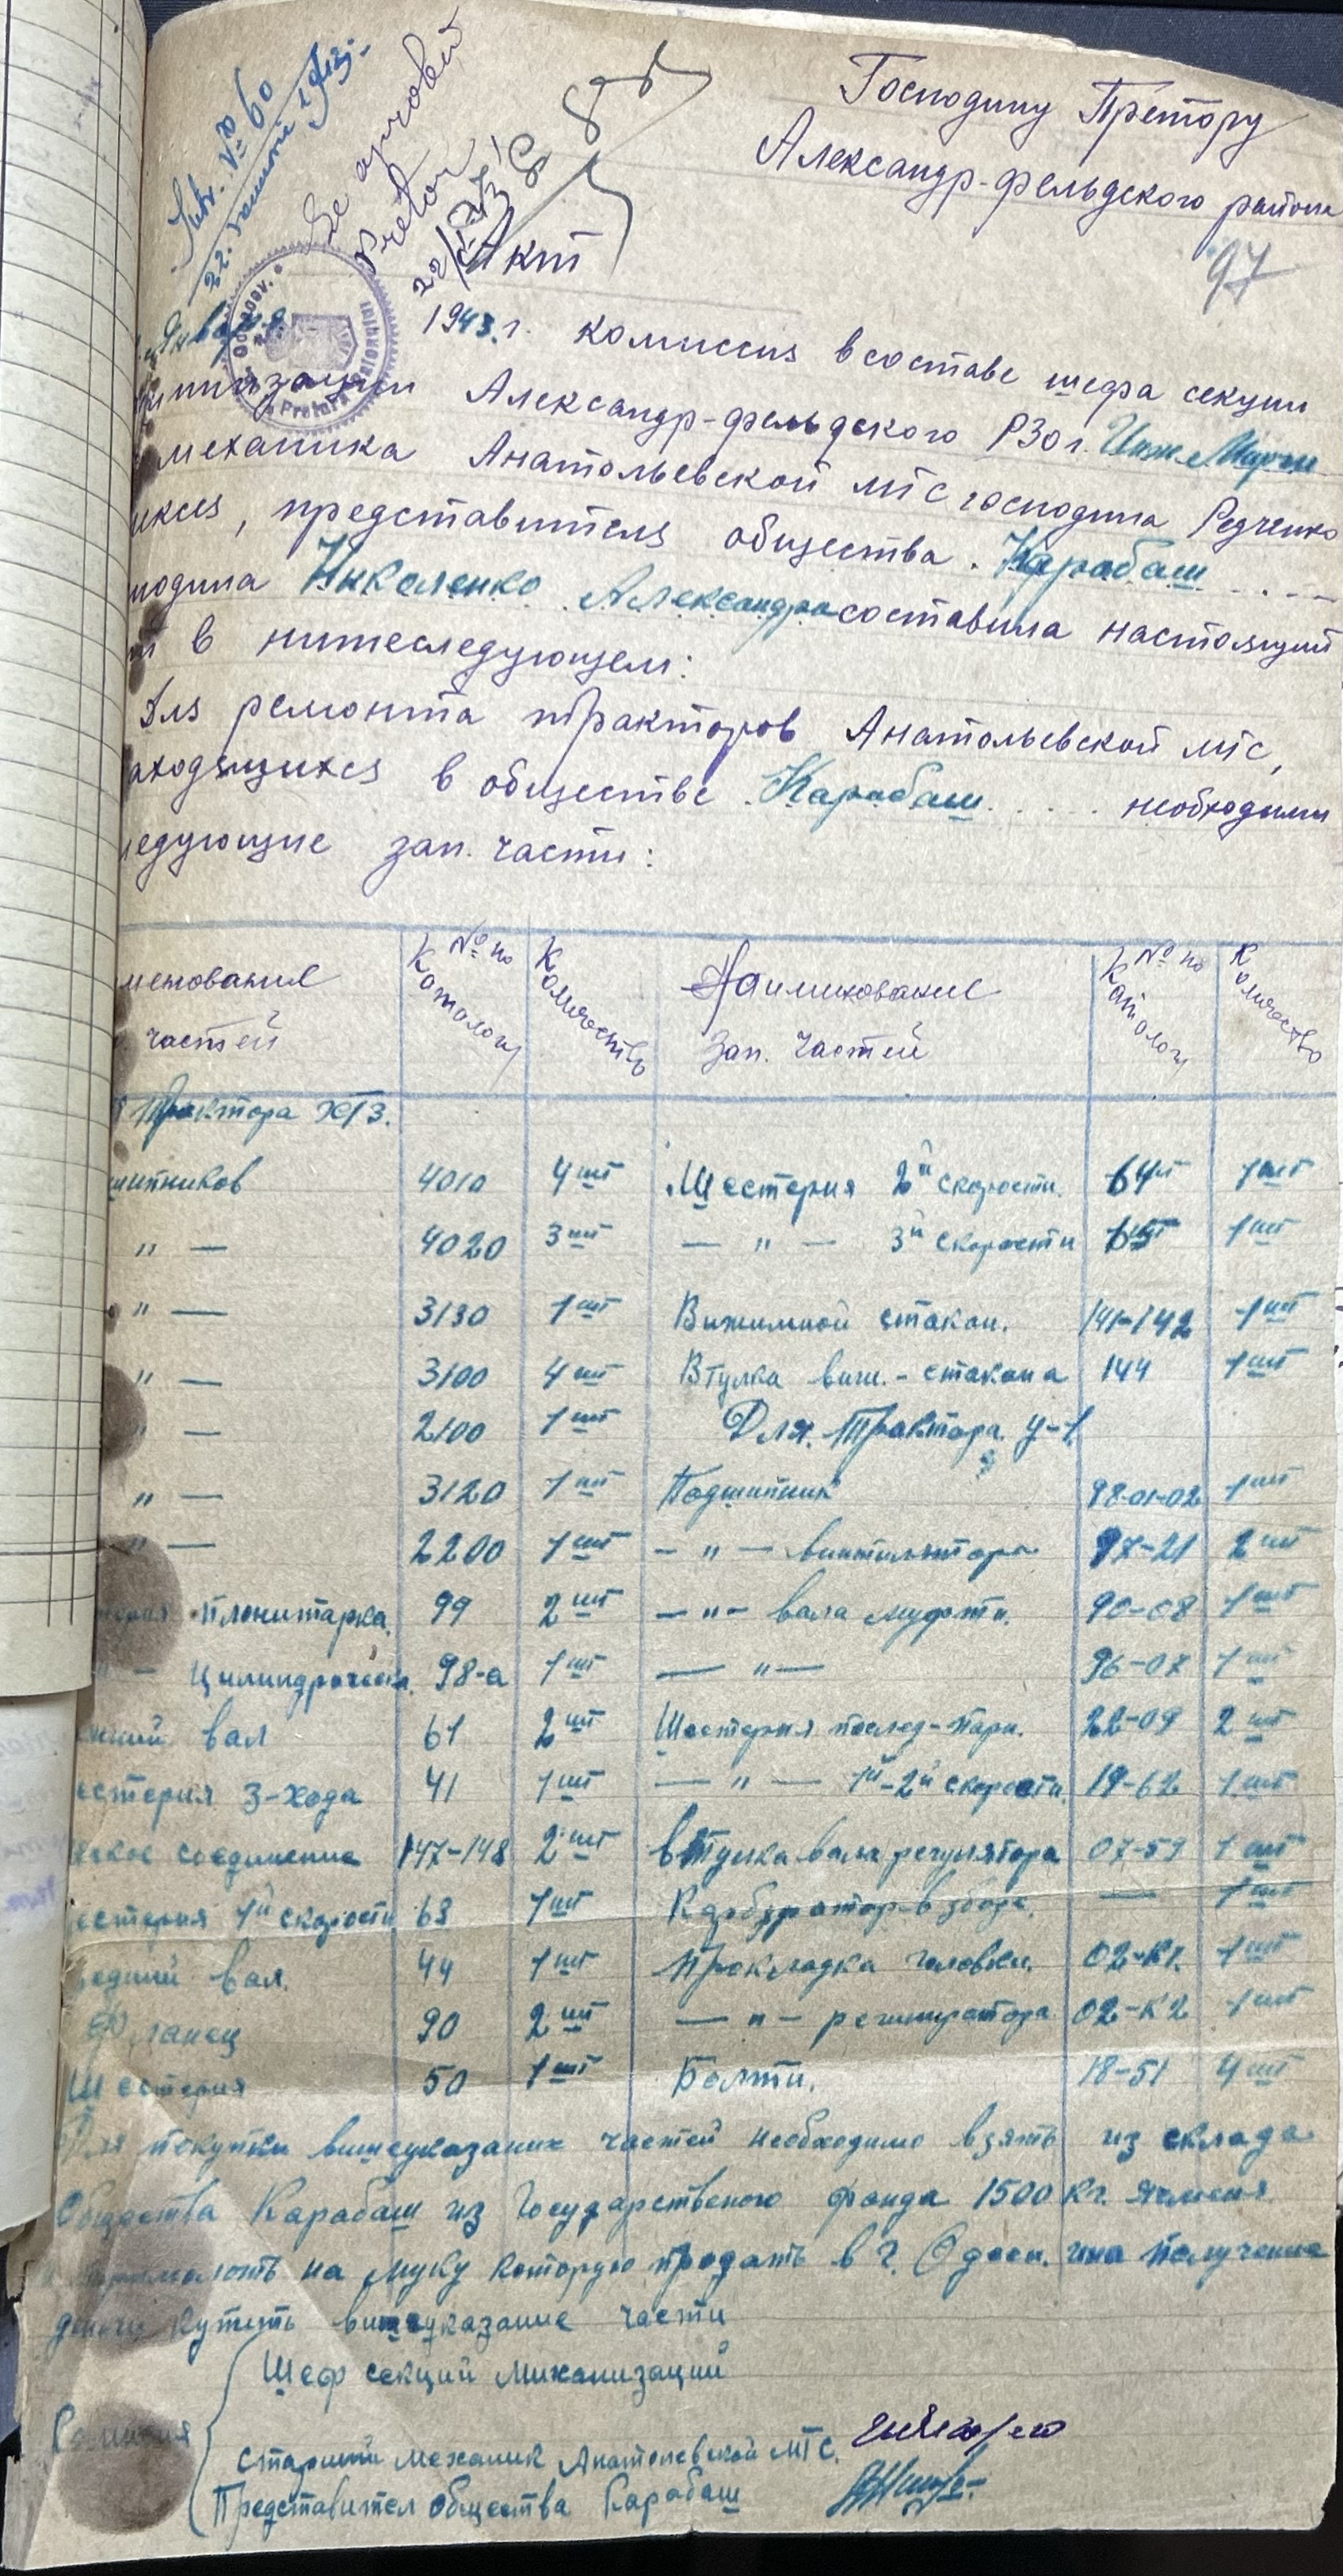 Intr. No 60
22. 1943
Se aprobă
Pretor
22/I 43
Господину Претору
Александр-фельдского района
97
Акт
Января 1943 г. комиссия в составе шефа секции
Александр-фельдского РЗО г. Инж.
механика Анатольевской мтс господина Редченко
представителя общества. Карабаш
Николенко Александра составила настоящий
в нижеследующем:
Для ремонта тракторов Анатольевской мтс,
аходящихся в обществе Карабаш необходимы
ледующие зап. части:
менование частей | № по Катологу | Количество | Наименование Зап. Частей | № по Катологу | Количество
Трактора ХТЗ.
шипников 4010 4 шт Шестерня 2й скорости. 64 1 шт
" — 4020 3 шт — " — 3й скорости 65 1 шт
" — 3130 1 шт Вижимной стакан. 141-142 1 шт
" — 3100 4 шт Втулка виж.-стакана 144 1 шт
" — 2100 1 шт Для Трактора У-1
" — 3120 1 шт Подшипник 98-01-02 1 шт
" — 2200 1 шт — " — винтилятора 97-21 2 шт
планитарка. 99 2 шт — " — вала муфти. 90-08 1 шт
" — Цилиндрическ. 98-а 1 шт — " — 96-07 1 шт
вал 61 2 шт Шестерня послед-пари. 22-09 2 шт
естерня З-хода 41 1 шт — " — 1й-2й скорости. 19-62 1 шт
соединение 147-148 2 шт втулка вала регулятора 07-59 1 шт
естерня 1й скорости 63 1 шт Карбуратор в зборе. — 1 шт
едний вал. 44 1 шт Прокладка головки. 02-К1. 1 шт
Фланец 90 2 шт — " — 02-К2 1 шт
Шестерня 50 1 шт Болти. 18-51 4 шт
Для покупки вишеуказание частей необходимо взять из склада
Общества Карабаш из Государственого фонда 1500 кг. ячменя
на муку которую продать в г. Одесс. и на получение
деньги купить вишеуказание части
Комисия
Шеф секций Миханизаций
Старший механик Анатолевской МТС.
Представител общества Карабаш